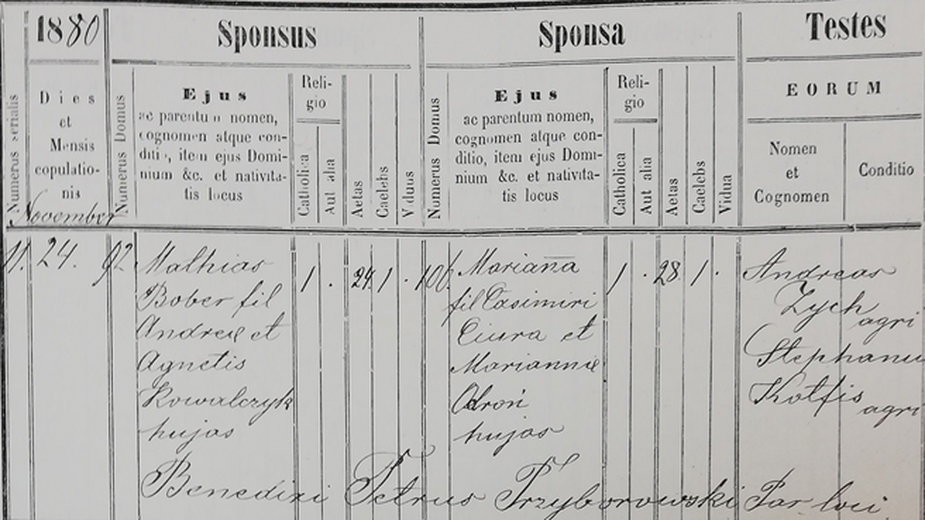 1880 Sponsus Sponsa Testes
Numerus serialis
Dies
et
Mensis
copulatio-
nis
November
Numerus Domus
Ejus
ac parentum nomen,
cognomen atque con-
ditio, item ejus Domi-
nium &c. et nativita-
tis locus
Reli-
gio
Catholica
Aut alia
Aetas
Caelebs
Viduus
Numerus Domus
Ejus
ac parentum nomen,
cognomen atque con-
ditio, item ejus Domi-
nium &c. et nativita-
tis locus
Reli-
gio
Catholica
Aut alia
Aetas
Caelebs
Vidua
EORUM
Nomen
et
Cognomen
Conditio
11. 24. 92
Mathias
Bober fil
Andreæ et
Agnetis
Kowalczyk
hujas
1 . 24 1 .
106.
Marianna
fil Casimiri
Ciura et
Mariannæ
hujas
1 . 28. 1 .
Andreas
Zych
agri
Stephanu
agri
Benedixi Petrus Przyborowski Par loci